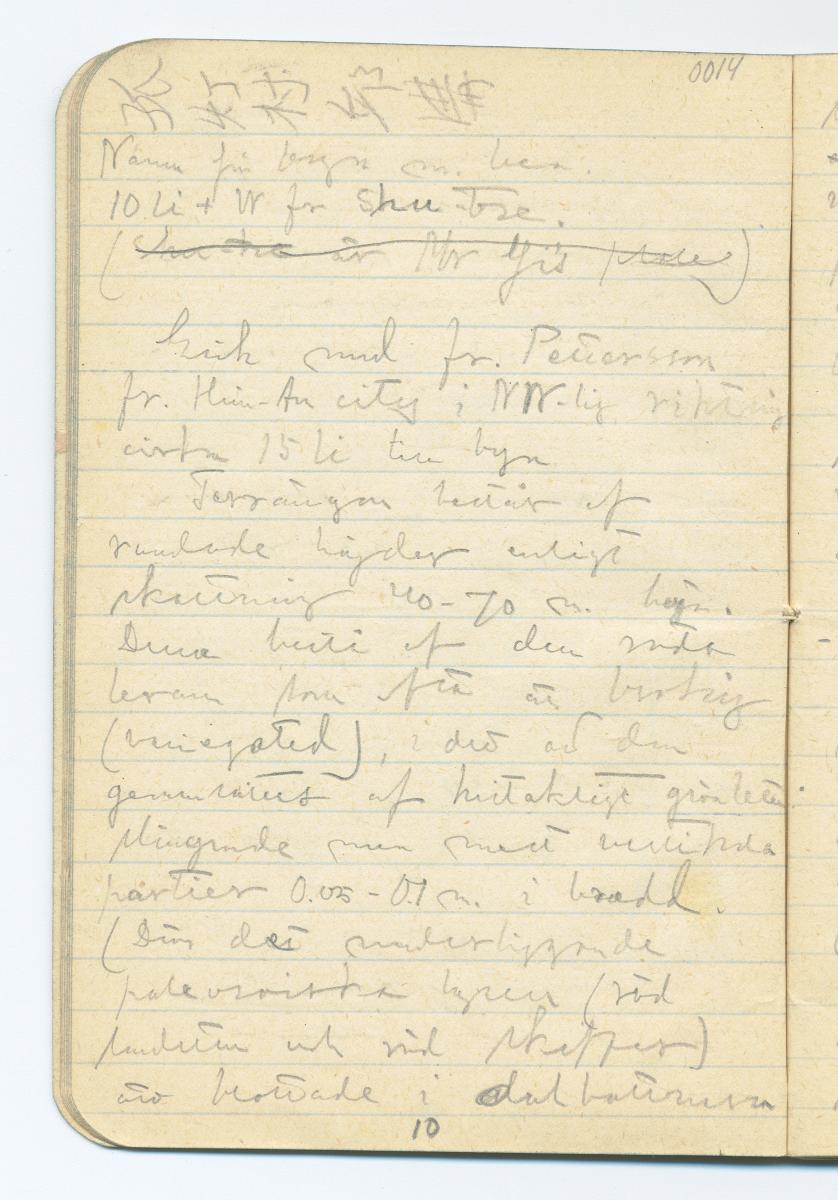 0014
村
Namn för byn m. ben.
10 li + W fr Shu-tze.
(Shu-tze är Mr Yi's place)
Gick med fr. Pettersson
fr. Hsin-An city i NW-lig riktning
cirka 15 li till byn
Terrängen består af
rundade höjder enligt
skattning 40-70 m. höjd.
Dessa bestå af den röda
leran som ofta är brokig
(variegated), i det att den
genomsättes af hvitaktigt grönletta
slingrande men mest vertikala
partier 0.05-0.1 m. i bredd.
(Där det underliggande
paleozoiska lagren (röd
sandsten och röd skiffer)
äro blottade i dalbottnarna
10